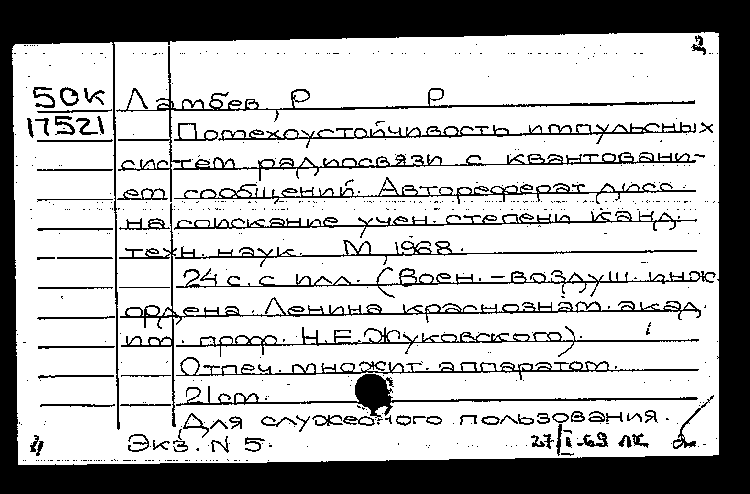 2
50К Ламбев, Р Р
17521 Помехоустойчивость импульсных
систем радиосвязи с квантовани-
ем сообщений. Автореферат дисс.
на соискание учен. степени канд.
техн. наук. М, 1968.
24 с. с илл. (Воен.-воздуш. инж.
ордена Ленина краснознам. акад.
им. проф. Н.Е.Жуковского).
Отпеч. множит. аппаратом.
21 см.
Для служебного пользования.
Экз. N 5. 27/I-69
4